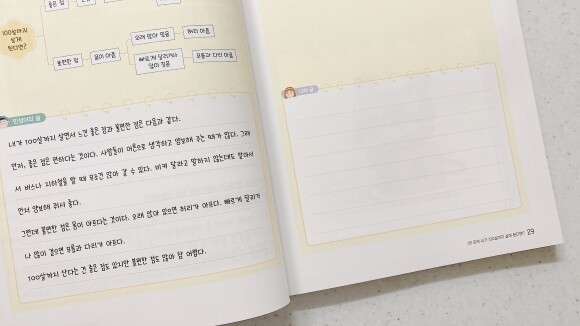 좋은 점
100살까지
살게
된다면?
불편한 점
몸이 아픔
오래 앉아 있음
허리 아픔
빠르게 달리거나
많이 걸음
무릎과 다리 아픔
민성이의 글
내가 100살까지 살면서 느낀 좋은 점과 불편한 점은 다음과 같다.
먼저, 좋은 점은 편하다는 것이다. 사람들이 어른으로 생각하고 양보해 주는 때가 많다. 그래
서 버스나 지하철을 탈 때 무조건 앉아 갈 수 있다. 비켜 달라고 말하지 않는데도 알아서
먼저 양보해 줘서 좋다.
그런데 불편한 점은 몸이 아프다는 것이다. 오래 앉아 있으면 허리가 아프다. 빠르게 달리거
나 많이 걸으면 무릎과 다리가 아프다.
100살까지 산다는 건 좋은 점도 있지만 불편한 점도 많아 참 어렵다.
나의 글
내가 100살까지 살게 된다면? 29